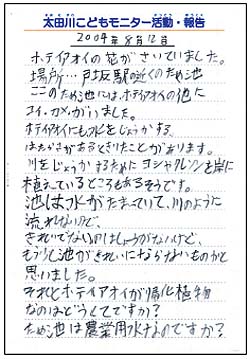 太田川こどもモニター活動・報告
2004年8月12日
ホテイアオイの花がさいていました。
場所…戸坂駅近くのため池
このため池には、ホテイアオイの他に
コイ、カメがいました。
ホテイアオイにも水をじょうかする
はたらきがあるときいたことがあります。
川をじょうかするためにヨシやクレソンを岸に
植えているところもあるそうです。
池は水がたまっていて、川のように
流れないので、
きれいでないのはしょうがないけど、
もう少し池がきれいにならないものかと
思いました。
それとホテイアオイが帰化植物
なのはどうしてですか?
ため池は農業用水なのですか?